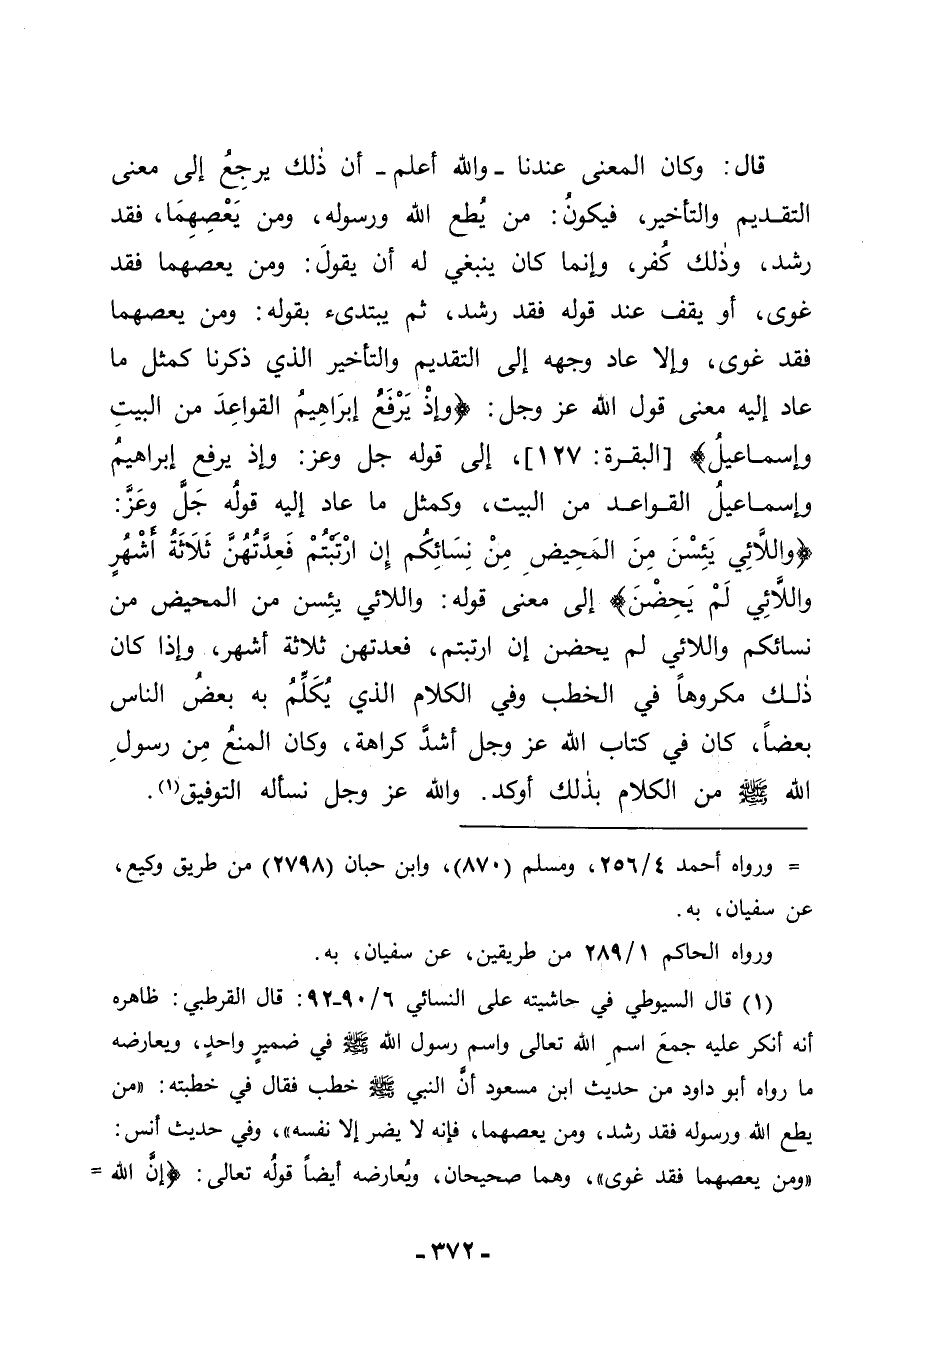 قال: وكان المعنى عندنا ـ والله أعلم ـ أن ذٰلك يرجِعُ إلى معنى
التقـديم والتأخير، فيكونُ: من يُطع الله ورسوله، ومن يَعْصِهِمَا، فقد
رشد، وذٰلك كُفر، وإنما كان ينبغي له أن يقولَ: ومن يعصهما فقد
غوى، أو يقف عند قوله فقد رشد، ثم يبتدىء بقوله: ومن يعصهما
فقد غوى، وإلا عاد وجهه إلى التقديم والتأخير الذي ذكرنا كمثل ما
عاد إليه معنى قول الله عز وجل: ﴿وإذْ يَرْفَعُ إبرَاهِيمُ القواعِدَ من البيتِ
وإسمـاعيلُ﴾ [البقـرة: ١٢٧]، إلى قوله جل وعز: وإذ يرفع إبراهيمُ
وإسمـاعيلُ القـواعـد من البيت، وكمثل ما عاد إليه قولُه جَلَّ وعَزَّ:
﴿واللَّائِي يَئِسْنَ مِنَ المَحيضِ مِنْ نِسَائِكُم إن ارْتَبْتُمْ فَعِدَّتُهُنَّ ثَلَاثَةُ أَشْهُرٍ
واللَّائِي لَمْ يَحِضْنَ﴾ إلى معنى قوله: واللائي يئسن من المحيض من
نسائكم واللائي لم يحضن إن ارتبتم، فعدتهن ثلاثة أشهر، وإذا كان
ذٰلـك مكروهاً في الخطب وفي الكلام الذي يُكَلِّمُ به بعضُ الناس
بعضاً، كان في كتاب الله عز وجل أشدَّ كراهة، وكان المنعُ مِن رسولِ
الله ﷺ من الكلام بذٰلك أوكد. والله عز وجل نسأله التوفيق(١).
= ورواه أحمد ٢٥٦/٤، ومسلم (٨٧٠)، وابن حبان (٢٧٩٨) من طريق وكيع،
عن سفيان، به.
ورواه الحاكم ٢٨٩/١ من طريقين، عن سفيان، به.
(١) قال السيوطي في حاشيته على النسائي ٩٠/٦-٩٢: قال القرطبي: ظاهره
أنه أنكر عليه جمعَ اسمِ الله تعالى واسم رسول الله ﷺ في ضميرٍ واحدٍ، ويعارضه
ما رواه أبو داود من حديث ابن مسعود أنَّ النبي ﷺ خطب فقال في خطبته: «من
يطع الله ورسوله فقد رشد، ومن يعصهما، فإنه لا يضر إلا نفسه»، وفي حديث أنس:
«ومن يعصهما فقد غوى»، وهما صحيحان، ويُعارضه أيضاً قولُه تعالى: ﴿إنَّ الله =
ـ ٣٧٢ ـ